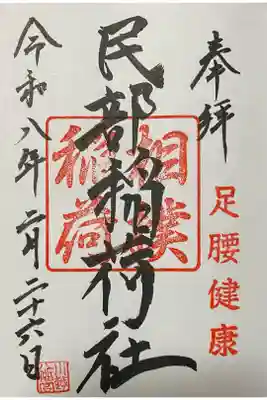 奉拝
足腰健康
民部稲荷社
相撲
稲荷
令和八年二月二十六日